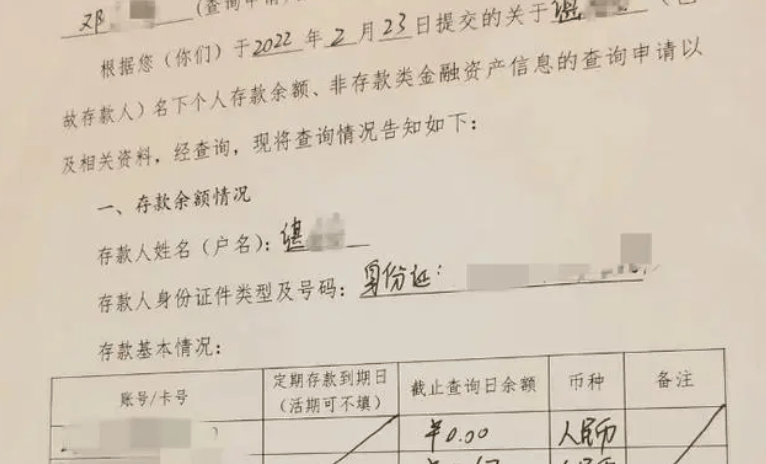 邓 (查询申请
根据您（你们）于2022年2月23日提交的关于谌 （已
故存款人）名下个人存款余额、非存款类金融资产信息的查询申请以
及相关资料，经查询，现将查询情况告知如下：
一、存款余额情况
存款人姓名（户名）：谌
存款人身份证件类型及号码：身份证：
存款基本情况：
账号/卡号 定期存款到期日（活期可不填） 截止查询日余额 币种 备注
¥0.00 人民币
人民币